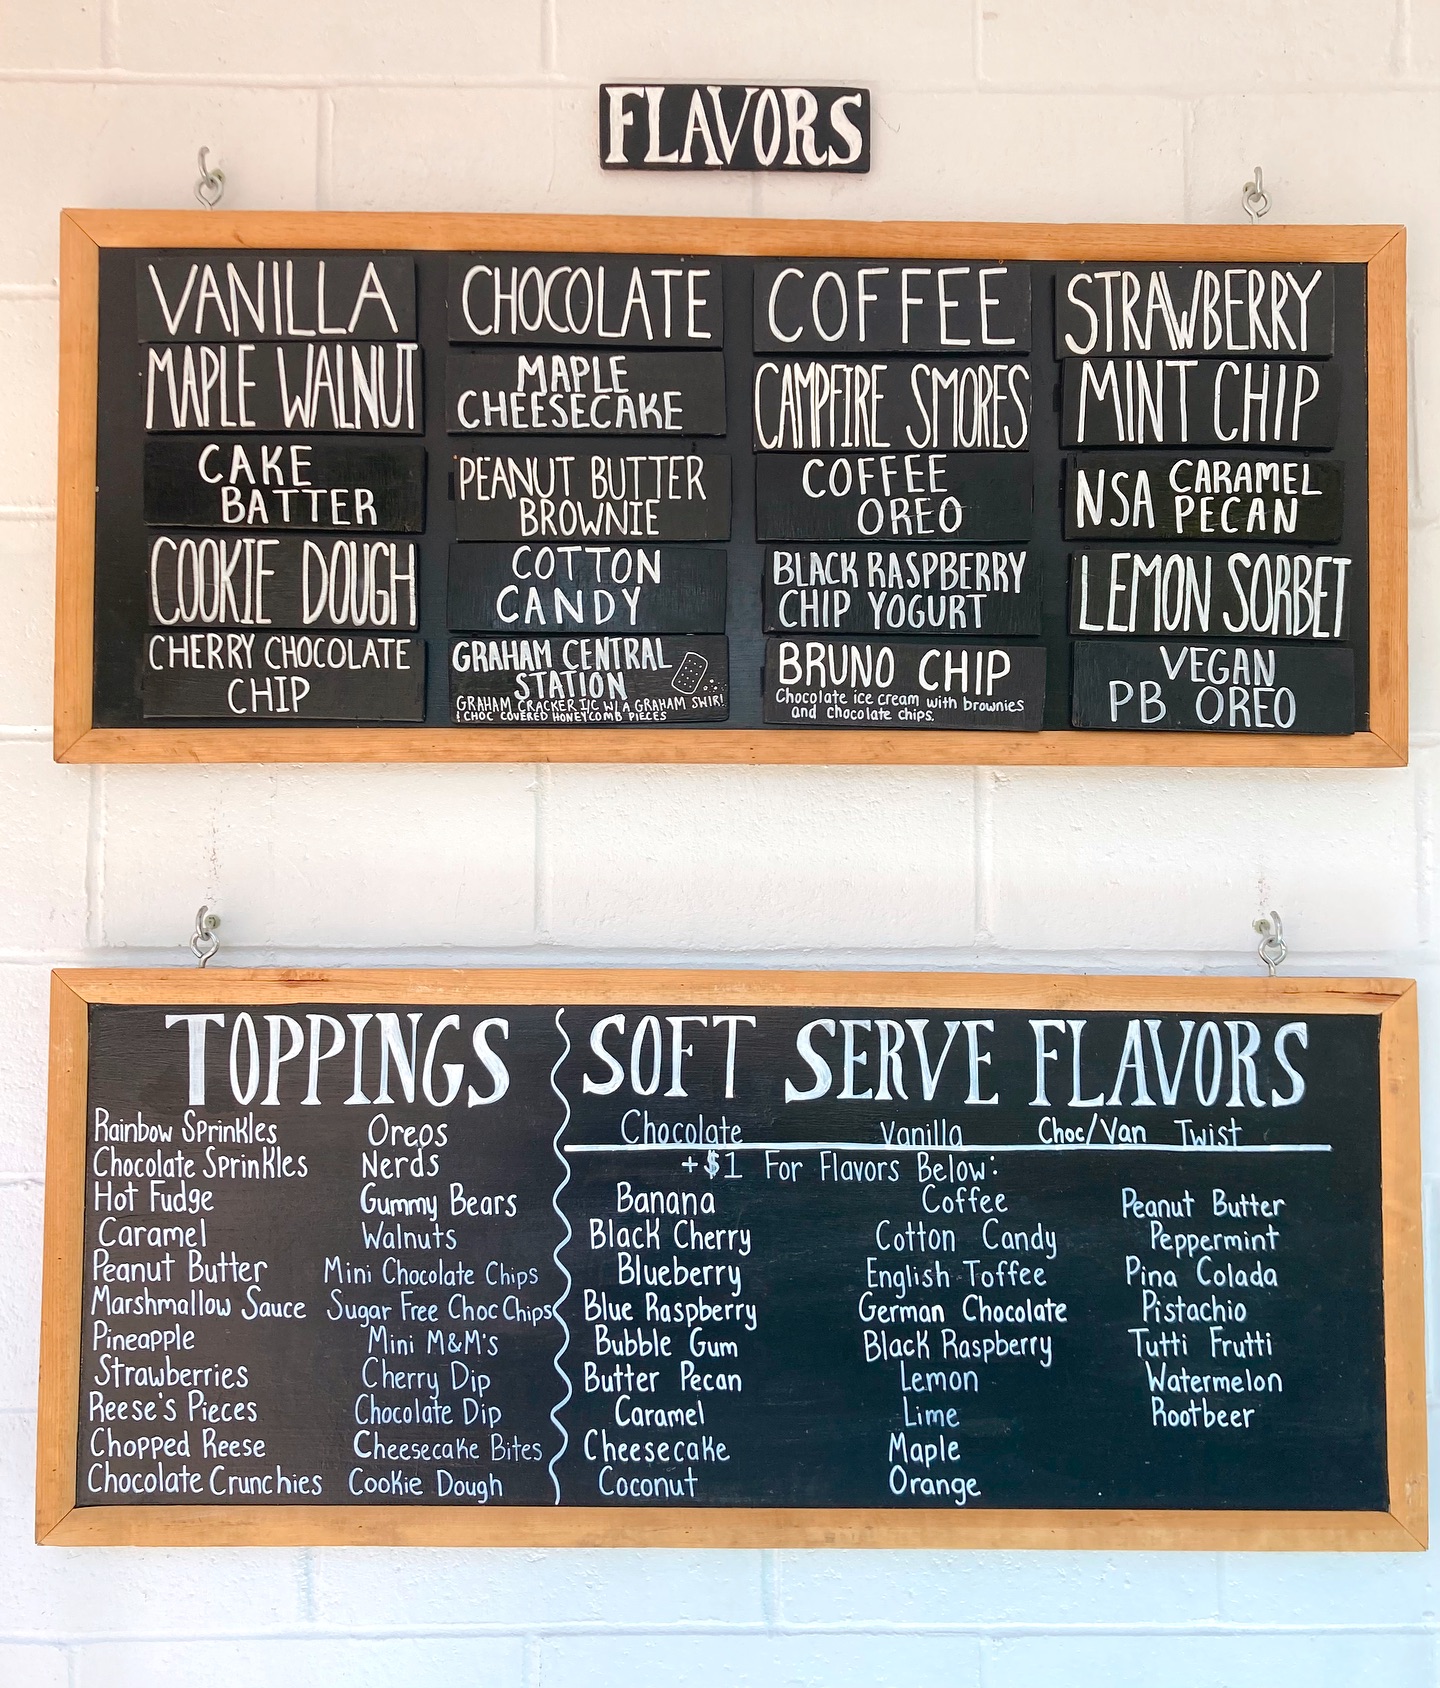 FLAVORS
VANILLA
CHOCOLATE
COFFEE
STRAWBERRY
MAPLE WALNUT
MAPLE
CHEESECAKE
CAMPFIRE SMORES
MINT CHIP
CAKE
BATTER
PEANUT BUTTER
BROWNIE
COFFEE
OREO
NSA CARAMEL
PECAN
COOKIE DOUGH
COTTON
CANDY
BLACK RASPBERRY
CHIP YOGURT
LEMON SORBET
CHERRY CHOCOLATE
CHIP
GRAHAM CENTRAL
STATION
GRAHAM CRACKER I/C W/ A GRAHAM SWIRL
& CHOC COVERED HONEYCOMB PIECES
BRUNO CHIP
Chocolate ice cream with brownies
and chocolate chips.
VEGAN
PB OREO
TOPPINGS
Rainbow Sprinkles
Chocolate Sprinkles
Hot Fudge
Caramel
Peanut Butter
Marshmallow Sauce
Pineapple
Strawberries
Reese's Pieces
Chopped Reese
Chocolate Crunchies
Oreos
Nerds
Gummy Bears
Walnuts
Mini Chocolate Chips
Sugar Free Choc Chips
Mini M&M's
Cherry Dip
Chocolate Dip
Cheesecake Bites
Cookie Dough
SOFT SERVE FLAVORS
Chocolate Vanilla Choc/Van Twist
+$1 For Flavors Below:
Banana
Black Cherry
Blueberry
Blue Raspberry
Bubble Gum
Butter Pecan
Caramel
Cheesecake
Coconut
Coffee
Cotton Candy
English Toffee
German Chocolate
Black Raspberry
Lemon
Lime
Maple
Orange
Peanut Butter
Peppermint
Pina Colada
Pistachio
Tutti Frutti
Watermelon
Rootbeer